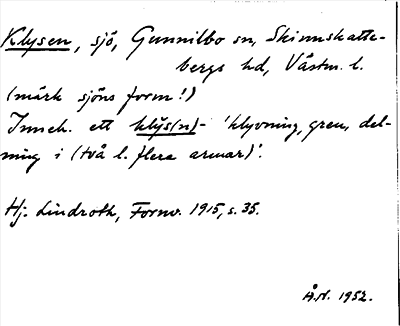 Klysen, sjö, Gunnilbo sn, Skinnskatte-
bergs hd, Västm. l.
(märk sjöns form!)
Inneh. ett klys(n)- 'klyvning, gren, del-
ning i (två l. flera armar)'.
Hj. Lindroth, Fornv. 1915, s. 35.
Å.H. 1952.